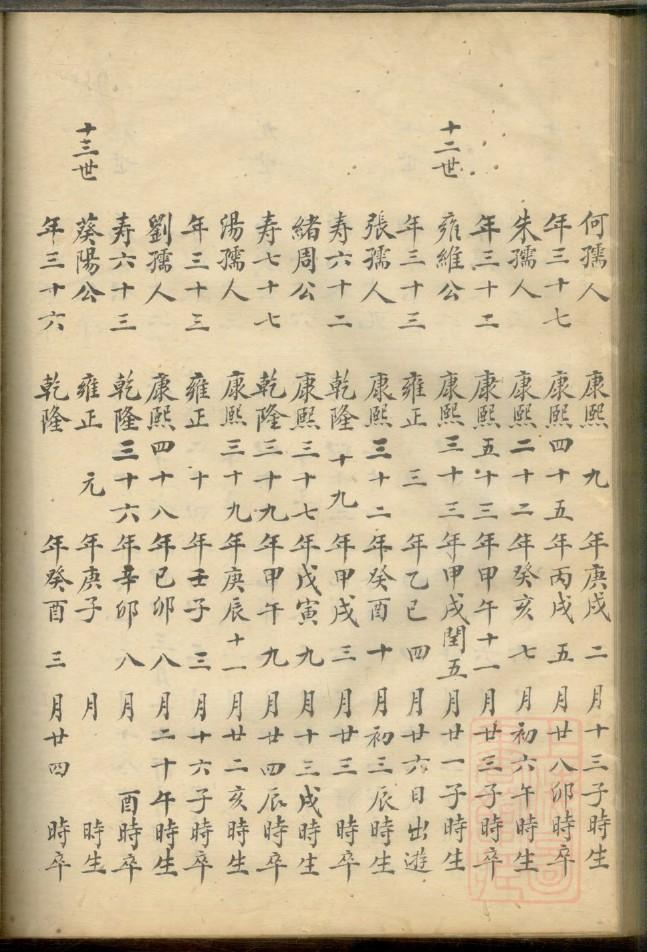 何孺人 康熙九年庚戌二月十三子時生
年三十七 康熙四十五年丙戌五月廿八卯時卒
朱孺人 康熙二十二年癸亥七月初六午時生
年三十二 康熙五十三年甲午十一月廿三子時卒
十二世 雍維公 康熙三十三年甲戌閏五月廿一子時生
年三十三 雍正三年乙巳四月廿六日出遊
張孺人 康熙三十二年癸酉十月初三辰時生
寿六十二 乾隆十九年甲戌三月廿三 時卒
緒周公 康熙三十七年戊寅九月十三戌時生
寿七十七 乾隆三十九年甲午九月廿四辰時卒
湯孺人 康熙三十九年庚辰十一月廿二亥時生
年三十三 雍正十年壬子三月十六子時卒
劉孺人 康熙四十八年己卯八月二十午時生
寿六十三 乾隆三十六年辛卯八月 酉時卒
十三世 葵陽公 雍正元年庚子 月 時生
年三十六 乾隆 年癸酉三月廿四 時卒